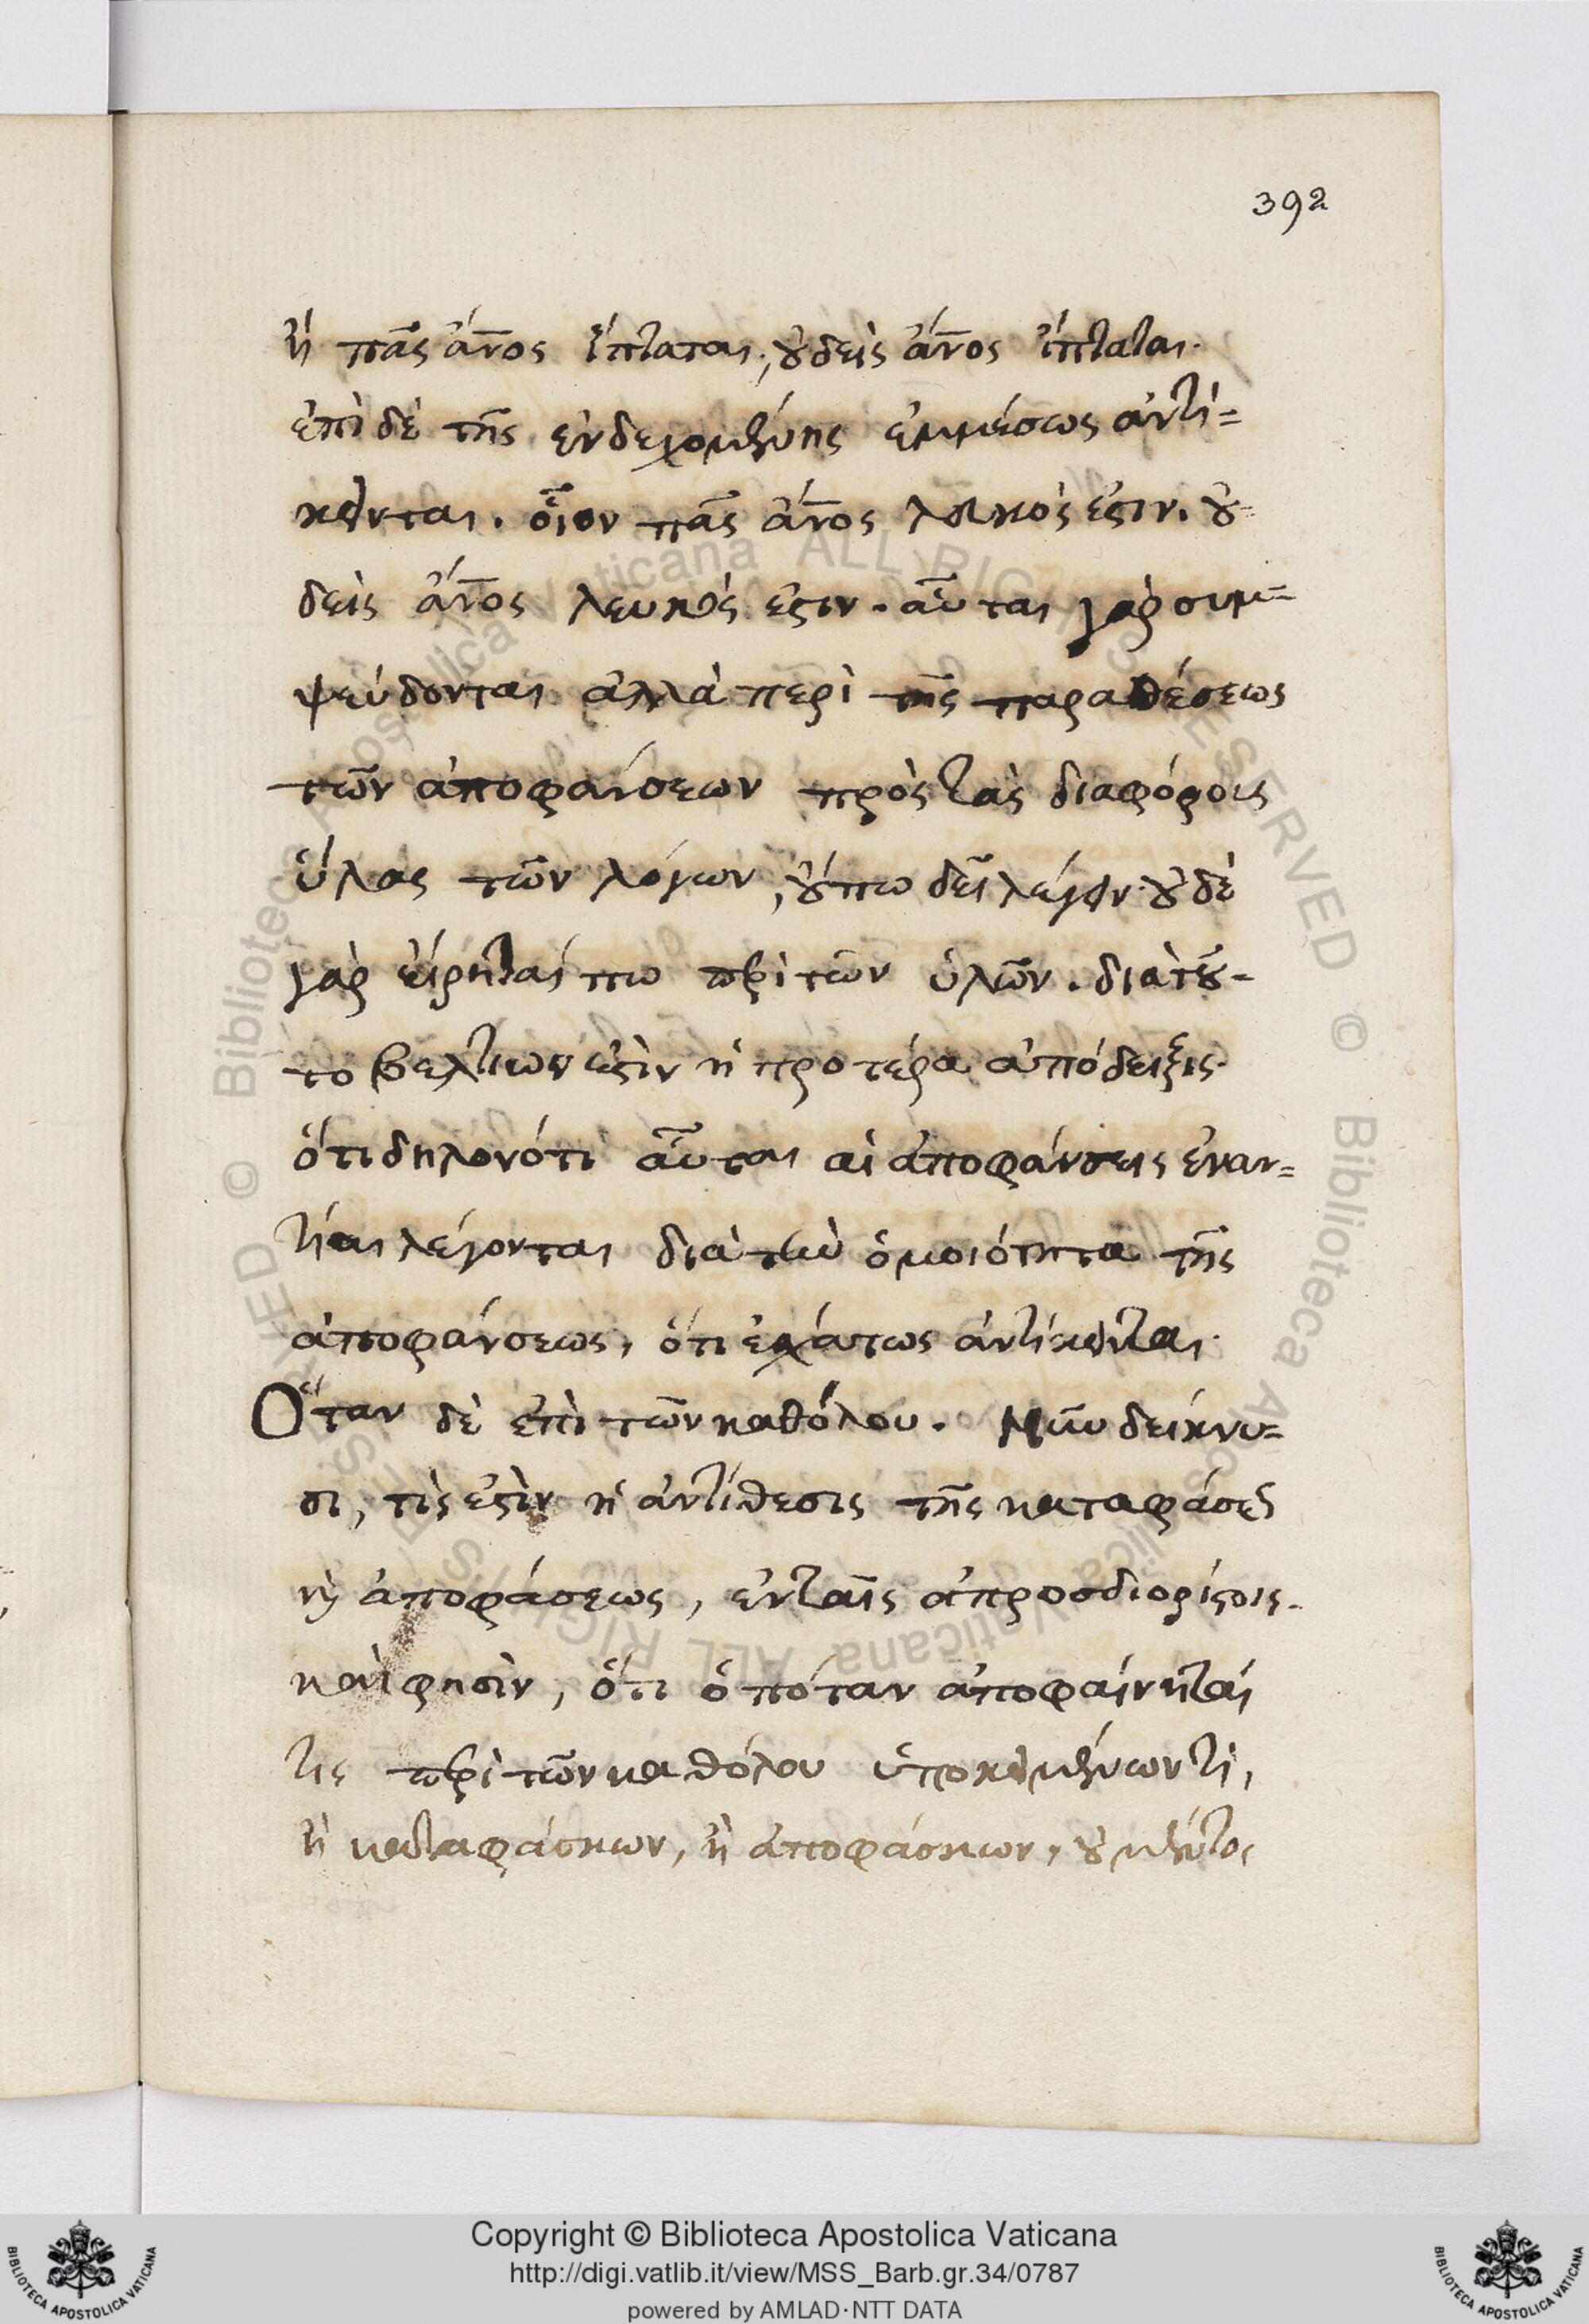 392
ἢ πᾶς ἄν̅ος ἵπταται, οὐδεὶς ἄν̅ος ἵπταται.
ἐπὶ δὲ τῆς ἐνδεχομένης ἐμμέσως ἀντί=
κεινται. οἷον πᾶς ἄν̅ος λευκός ἐστιν. οὐ=
δεὶς ἄν̅ος λευκός ἐστιν. αὗται γὰρ συμ=
ψεύδονται ἀλλὰ περὶ τῆς παραθέσεως
τῶν ἀποφάνσεων πρὸς τὰς διαφόροις
ὕλας τῶν λόγων, οὔπω δεῖ λέγειν. οὐδὲ
γὰρ εἴρηταί πω περὶ τῶν ὑλῶν. διὰ τοῦ-
το βελτίων ἐστὶν ἡ προτέρα ἀπόδειξις.
ὅτι δηλονότι αὗται αἱ ἀποφάνσεις ἐναν=
τίαι λέγονται διὰ τὴν ὁμοιότητα τῆς
ἀποφάνσεως, ὅτι ἐσχάτως ἀντίκεινται.
Ὅταν δὲ ἐπὶ τῶν καθόλου. Νῦν δείκνυ=
σι, τίς ἐστὶν ἡ ἀντίθεσις τῆς καταφάσεως
καὶ ἀποφάσεως, ἐν ταῖς ἀπροσδιορίστοις.
καὶ φησὶν, ὅτι ὁπόταν ἀποφαίνηταί
τις περὶ τῶν καθόλου ὑποκειμένων τὶ,
ἢ καταφάσκων, ἢ ἀποφάσκων, οὐ μέντοι
Copyright © Biblioteca Apostolica Vaticana
http://digi.vatlib.it/view/MSS_Barb.gr.34/0787
powered by AMLAD·NTT DATA